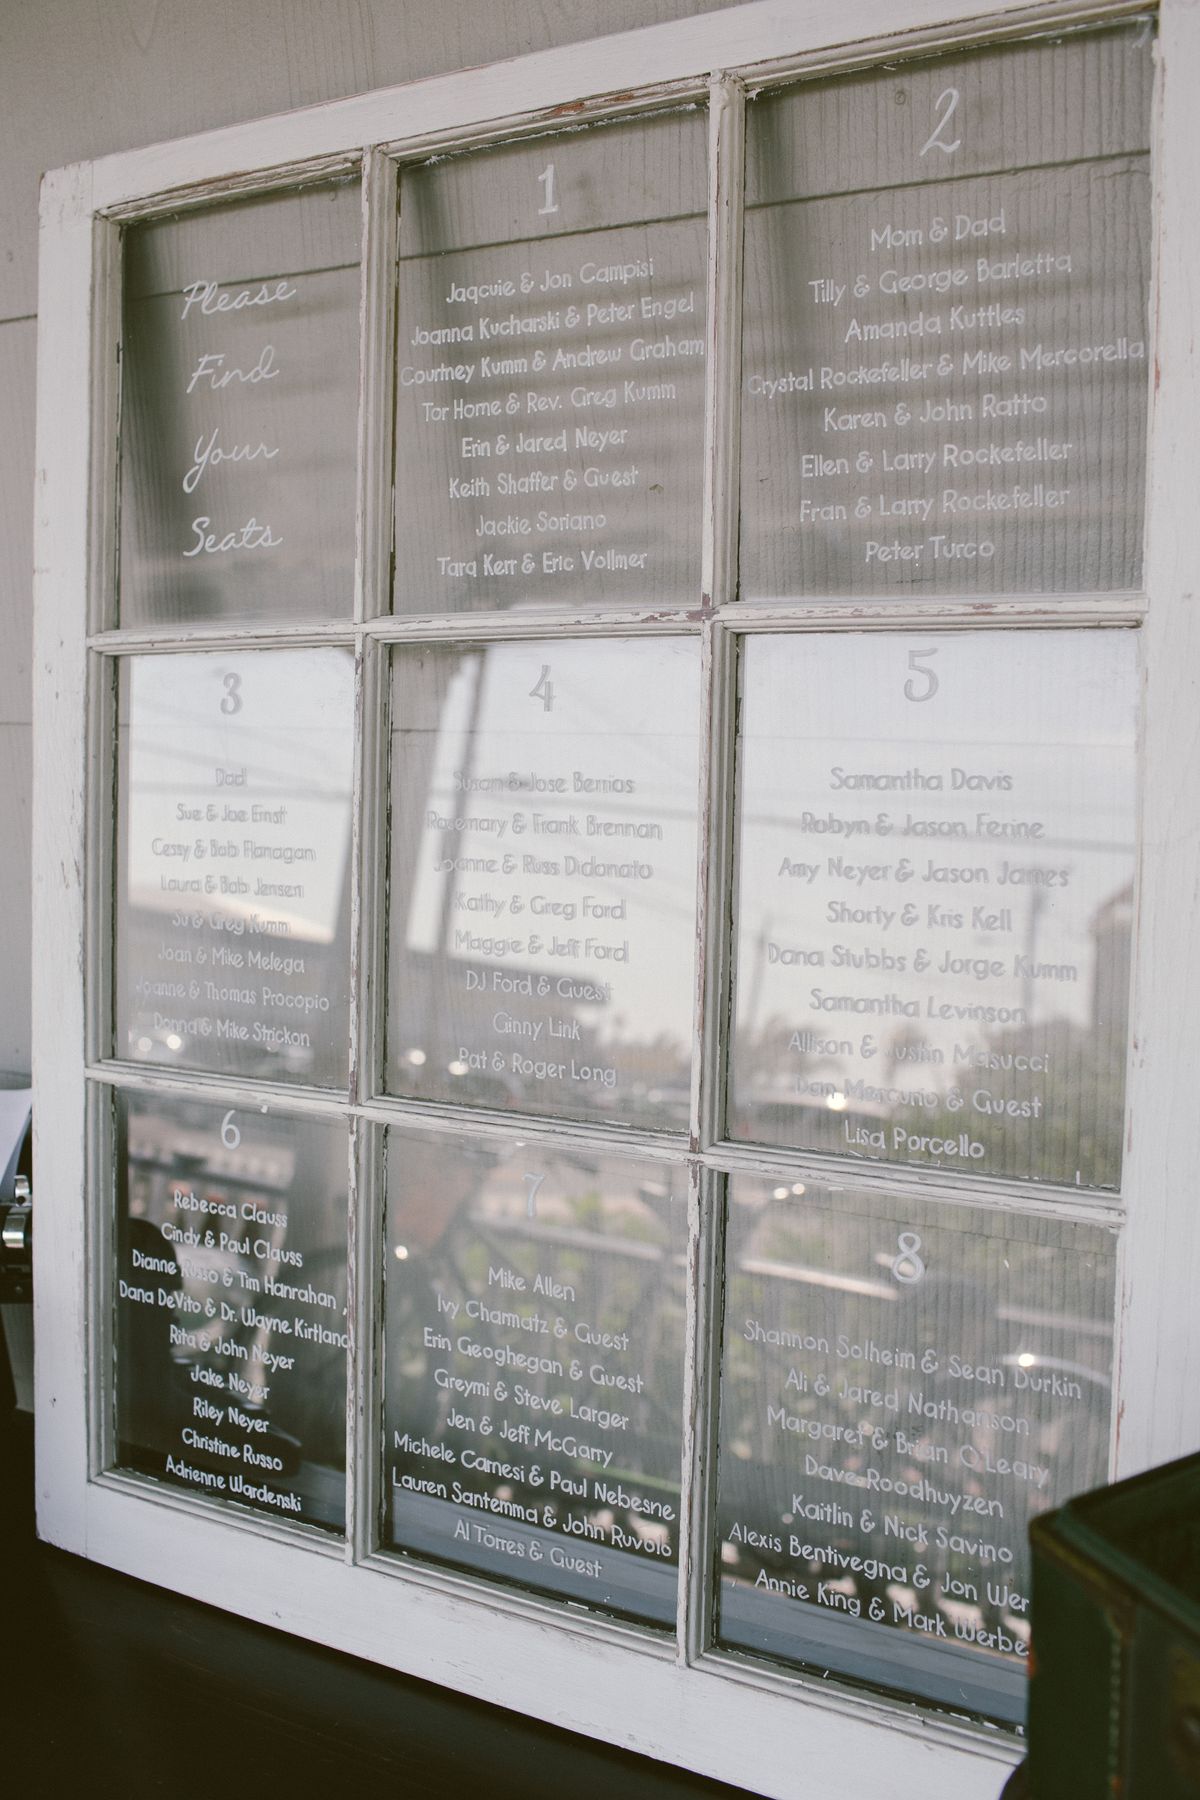 Please
Find
Your
Seats
1
Jaqcuie & Jon Campisi
Joanna Kucharski & Peter Engel
Courtney Kumm & Andrew Graham
Tor Home & Rev. Greg Kumm
Erin & Jared Neyer
Keith Shaffer & Guest
Jackie Soriano
Tara Kerr & Eric Vollmer
2
Mom & Dad
Tilly & George Barletta
Amanda Kuttles
Crystal Rockefeller & Mike Mercorella
Karen & John Ratto
Ellen & Larry Rockefeller
Fran & Larry Rockefeller
Peter Turco
3
Dad
Sue & Joe Ernst
Cessy & Bob Flanagan
Laura & Bob Jensen
Su & Greg Kumm
Joan & Mike Melega
Joanne & Thomas Procopio
Donna & Mike Strickon
4
Susan & Jose Berrios
Rosemary & Frank Brennan
Joanne & Russ Didonato
Kathy & Greg Ford
Maggie & Jeff Ford
DJ Ford & Guest
Ginny Link
Pat & Roger Long
5
Samantha Davis
Robyn & Jason Ferine
Amy Neyer & Jason James
Shorty & Kris Kell
Dana Stubbs & Jorge Kumm
Samantha Levinson
Allison & Justin Masucci
Dan Mercurio & Guest
Lisa Porcello
6
Rebecca Clauss
Cindy & Paul Clauss
Dianne Russo & Tim Hanrahan
Dana DeVito & Dr. Wayne Kirtland
Rita & John Neyer
Jake Neyer
Riley Neyer
Christine Russo
Adrienne Wardenski
7
Mike Allen
Ivy Charmatz & Guest
Erin Geoghegan & Guest
Greymi & Steve Larger
Jen & Jeff McGarry
Michele Carnesi & Paul Nebesne
Lauren Santemma & John Ruvolo
Al Torres & Guest
8
Shannon Solheim & Sean Durkin
Ali & Jared Nathanson
Margaret & Brian O'Leary
Dave Roodhuyzen
Kaitlin & Nick Savino
Alexis Bentivegna & Jon Wer
Annie King & Mark Werbe